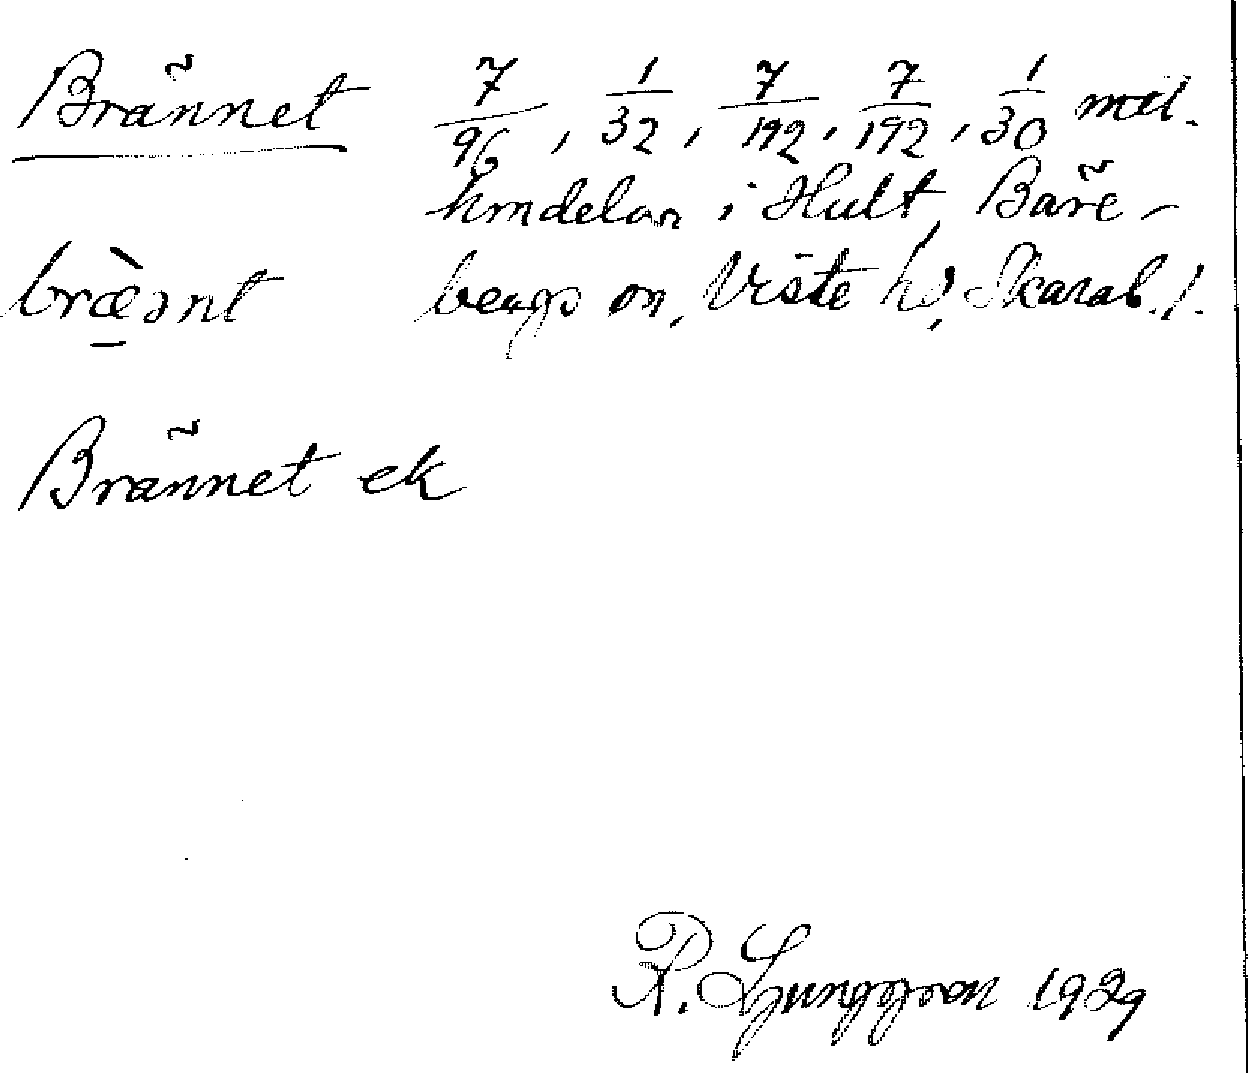 Brännet 7/96, 1/32, 7/192, 7/192, 1/30 mtl.
hmdelar i Hult, Båre-
bræ̀ənt bergs sn, Viste hd, Skarab. l.
Brännet ek
R. Ljunggren 1929